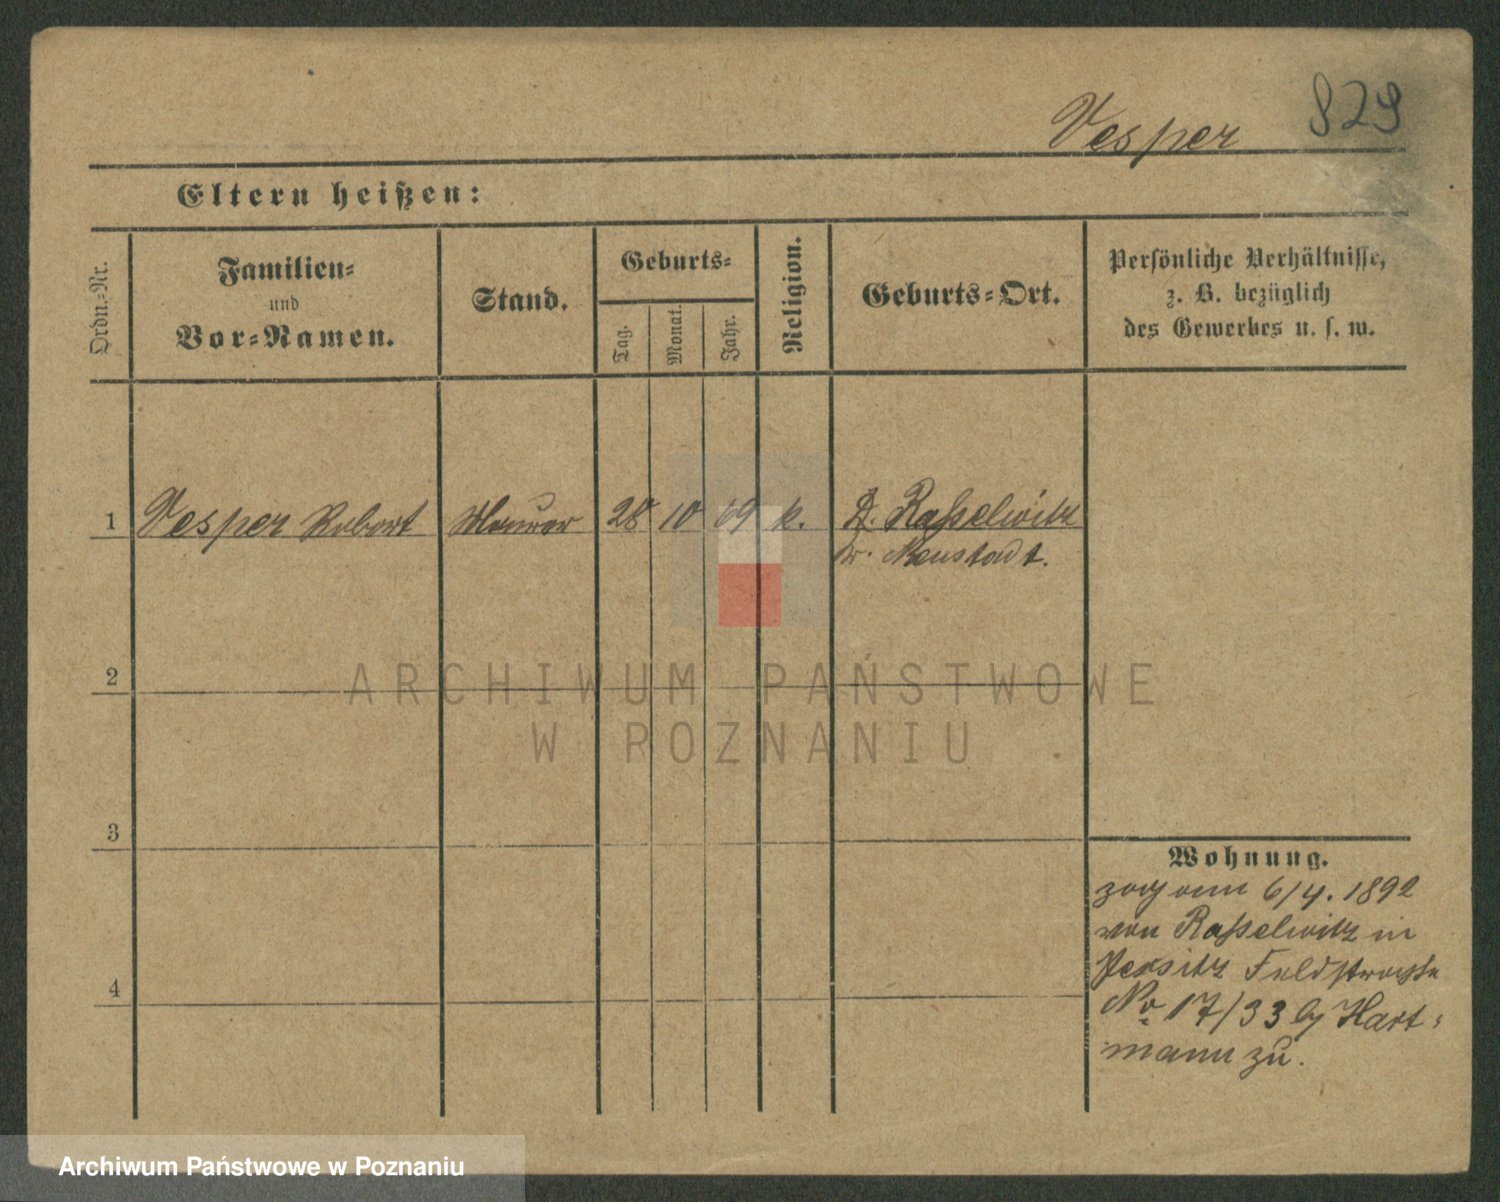 829
Vesper
Eltern heißen:
Ordn.-Nr.
Familien-
und
Vor-Namen.
Stand.
Geburts-
Tag.
Monat.
Jahr.
Religion.
Geburts-Ort.
Persönliche Verhältnisse,
z. B. bezüglich
des Gewerbes u. s. w.
1 Vesper Robert Maurer 28 10 69 k. D. Rasselwitz
Kr. Neustadt.
2
3
4
Wohnung.
zog am 6/4. 1892
von Rasselwitz in
Jersitz Feldstraße
No 17/33 by Hart-
mann zu.
ARCHIWUM PAŃSTWOWE
W POZNANIU
Archiwum Państwowe w Poznaniu